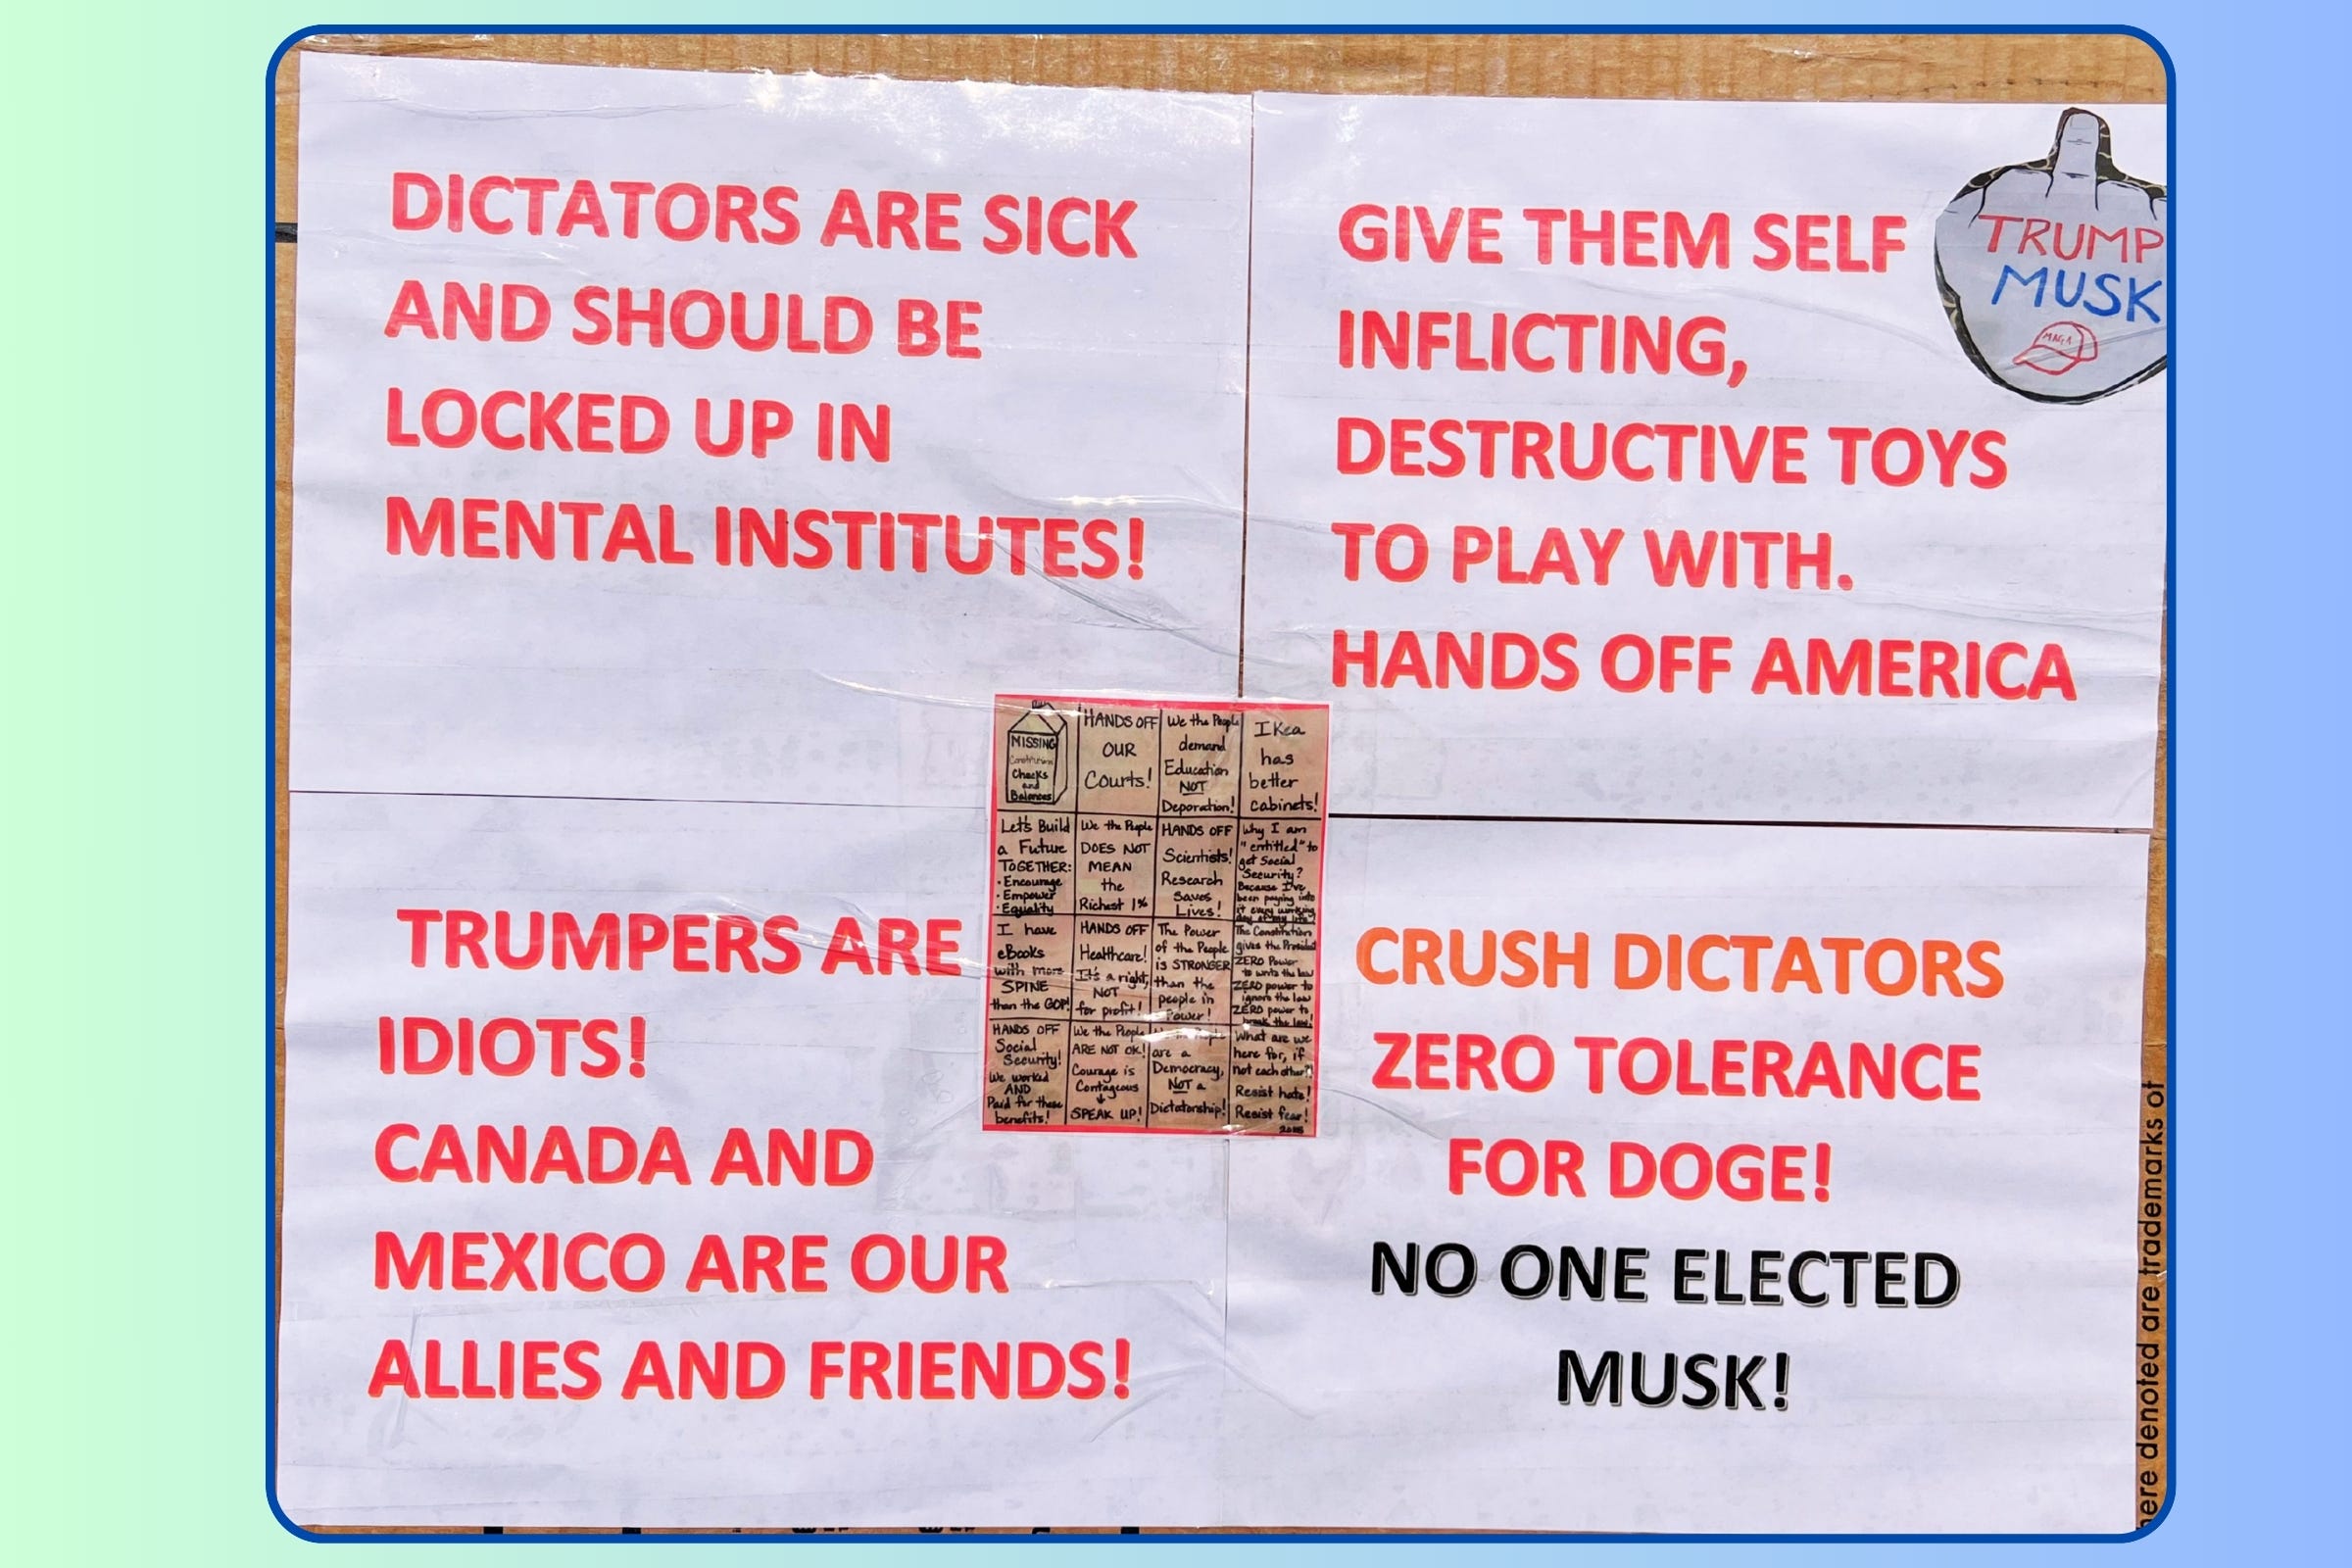 DICTATORS ARE SICK
AND SHOULD BE
LOCKED UP IN
MENTAL INSTITUTES!
GIVE THEM SELF
INFLICTING,
DESTRUCTIVE TOYS
TO PLAY WITH.
HANDS OFF AMERICA
TRUMP
MUSK
MAGA
MISSING
Constitution
Checks
and
Balances
HANDS OFF
OUR
Courts!
We the People
demand
Education
NOT
Deporation!
IKea
has
better
cabinets!
Let's Build
a Future
TOGETHER:
• Encourage
• Empower
• Equality
We the People
DOES NOT
MEAN
the
Richest 1%
HANDS OFF
Scientists!
Research
Saves
Lives!
Why I am
"entitled" to
get Social
Security?
Because I've
been paying into
it every working
day of my life
I have
eBooks
with more
SPINE
than the GOP!
HANDS OFF
Healthcare!
It's a right,
NOT
for profit!
The Power
of the People
is STRONGER
than the
people in
Power!
The Constitution
gives the President
ZERO Power
to write the law
ZERO power to
ignore the law
ZERO power to
break the law!
HANDS OFF
Social
Security!
We worked
AND
Paid for these
benefits!
We the People
ARE NOT OK!
Courage is
Contageous
SPEAK UP!
are a
Democracy,
NOT a
Dictatorship!
What are we
here for, if
not each other?!
Resist hate!
Resist fear!
TRUMPERS ARE
IDIOTS!
CANADA AND
MEXICO ARE OUR
ALLIES AND FRIENDS!
CRUSH DICTATORS
ZERO TOLERANCE
FOR DOGE!
NO ONE ELECTED
MUSK!
here denoted are trademarks of